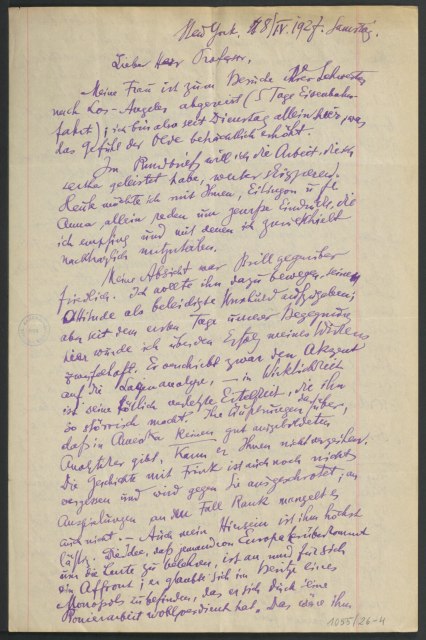 New York, 8/IV. 1927. Samstag.
Lieber Herr Professor,
Meine Frau ist zum Besuche ihrer Schwester
nach Los-Angeles abgereist (5 Tage Eisenbahn-
fahrt); ich bin also seit Dienstag allein hier, was
das Gefühl der Oede beträchtlich erhöht.
Im Rundbrief will ich die Arbeit, die ich
geleistet habe, weiter skizzieren.
Heute möchte ich mit Ihnen, Eitingon u. Frl.
Anna allein reden um gewisse Eindrücke, die
ich empfing und mit denen ich zurückhielt
nachträglich mitzuteilen.
Meine Absicht war Brill gegenüber
friedlich. Ich wollte ihn dazu bewegen seine
Attitude als beleidigte Unschuld aufzugeben;
aber seit dem ersten Tage unserer Begegnung
hier wurde ich über den Erfolg meines Wirkens
zweifelhaft. Er verschiebt zwar den Akzent
auf die Laienanalyse, – in Wirklichkeit
ist seine tötlich verletzte Eitelkeit, die ihn
so störrisch macht. Ihre Äußerungen darüber,
daß in Amerika keinen gut ausgebildeten
Analytiker gibt, kann er Ihnen nicht verzeihen.
Die Geschichte mit Frink ist auch noch nicht
vergessen und wird gegen Sie ausgeschrotet; an
Anspielungen an den Fall Rank mangelt es
auch nicht. – Auch mein Hiersein ist ihm höchst
lästig. Die Idee, daß jemand von Europa herüberkommt
um die Leute zu belehren, ist an und für sich
ein Affront; er glaubt sich im Besitze eines
Monopols zu befinden, das er sich durch seine
Pionierarbeit wohlverdient hat. Das wäre ihm
1055/26-4